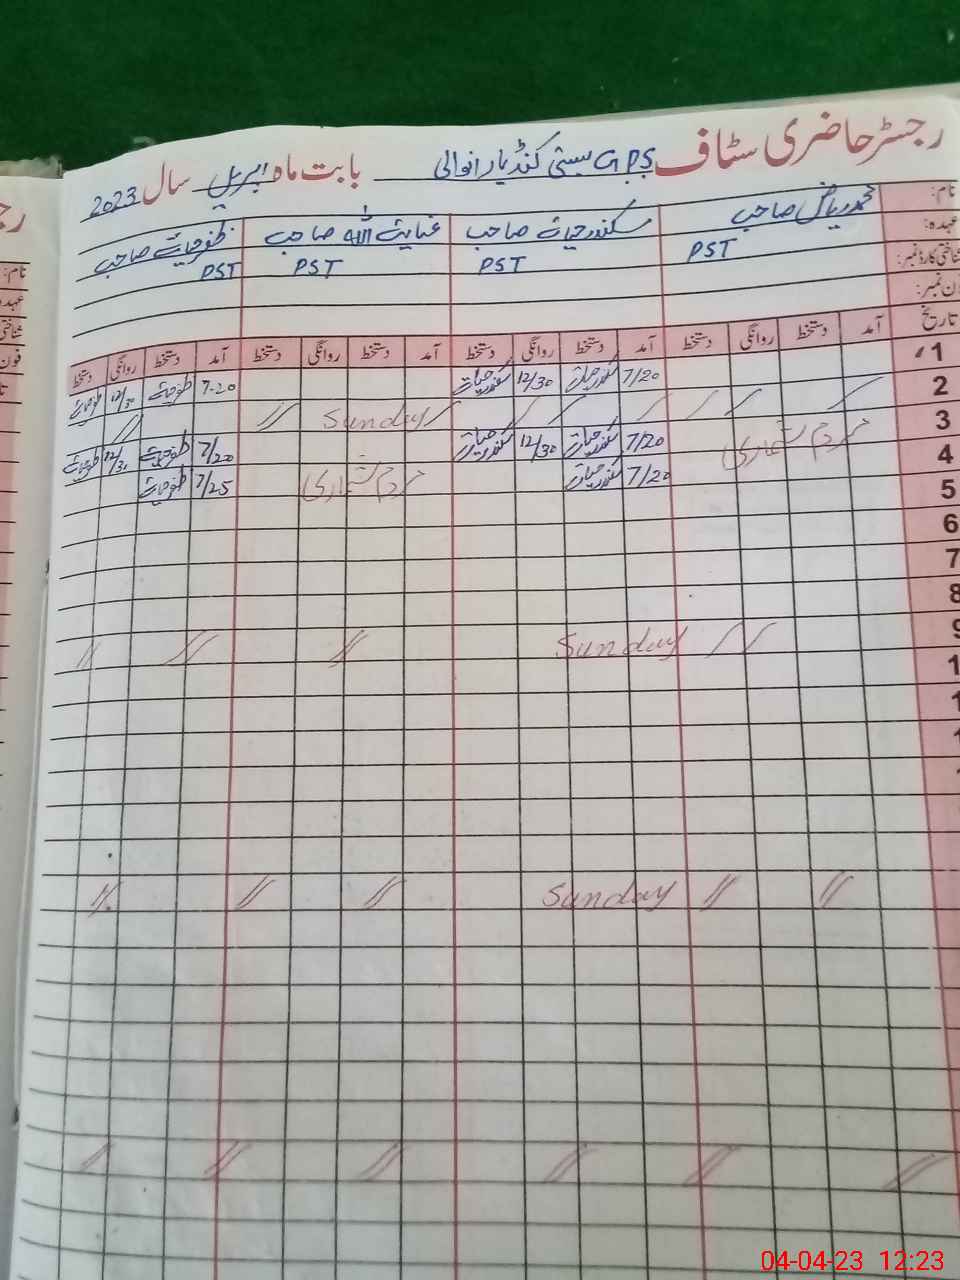 رجسٹر حاضری سٹاف GPS بستی کنڈیارانوالی بابت ماہ اپریل سال 2023
نام: محمد ریاض صاحب سکندر حیات صاحب عنایت اللہ صاحب ظفر حیات صاحب
عہدہ: PST PST PST PST
شناختی کارڈ نمبر:
فون نمبر:
تاریخ آمد دستخط روانگی دستخط آمد دستخط روانگی دستخط آمد دستخط روانگی دستخط آمد دستخط روانگی دستخط
1 7/20 سکندر حیات 12/30 سکندر حیات 7-20 ظفر حیات 12/30 ظفر حیات
2 Sunday
3 مردم شماری 7/20 سکندر حیات 12/30 سکندر حیات مردم شماری 7/20 ظفر حیات 12/30 ظفر حیات
4 7/20 سکندر حیات 7/25 ظفر حیات
5
6
7
8
9 Sunday
1
1
1
Sunday
رجـ
نام:
عہدہ
شناختی
فون
04-04-23 12:23